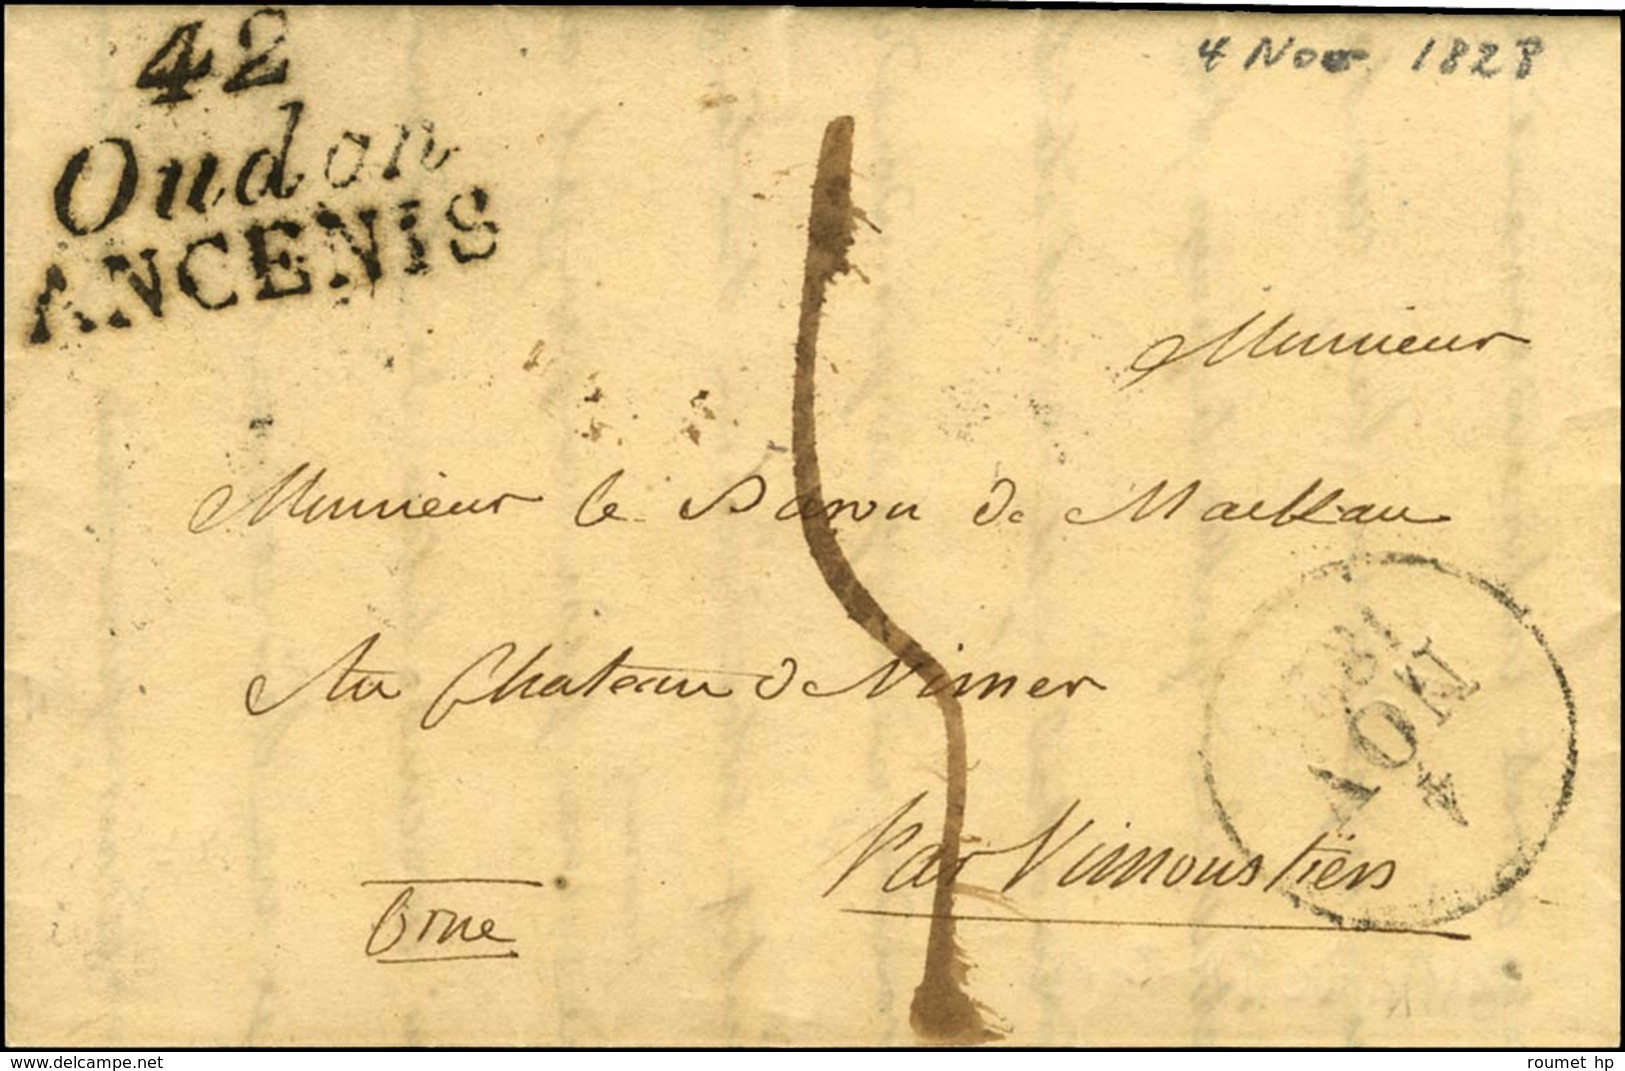 42
Oudon
ANCENIS
4 Nov 1828
Monsieur
Monsieur le Baron de Mackau
Au Chateau de Vimer
Par Vimoustiers
Orne
4
NOV
roumet hp
www.delcampe.net